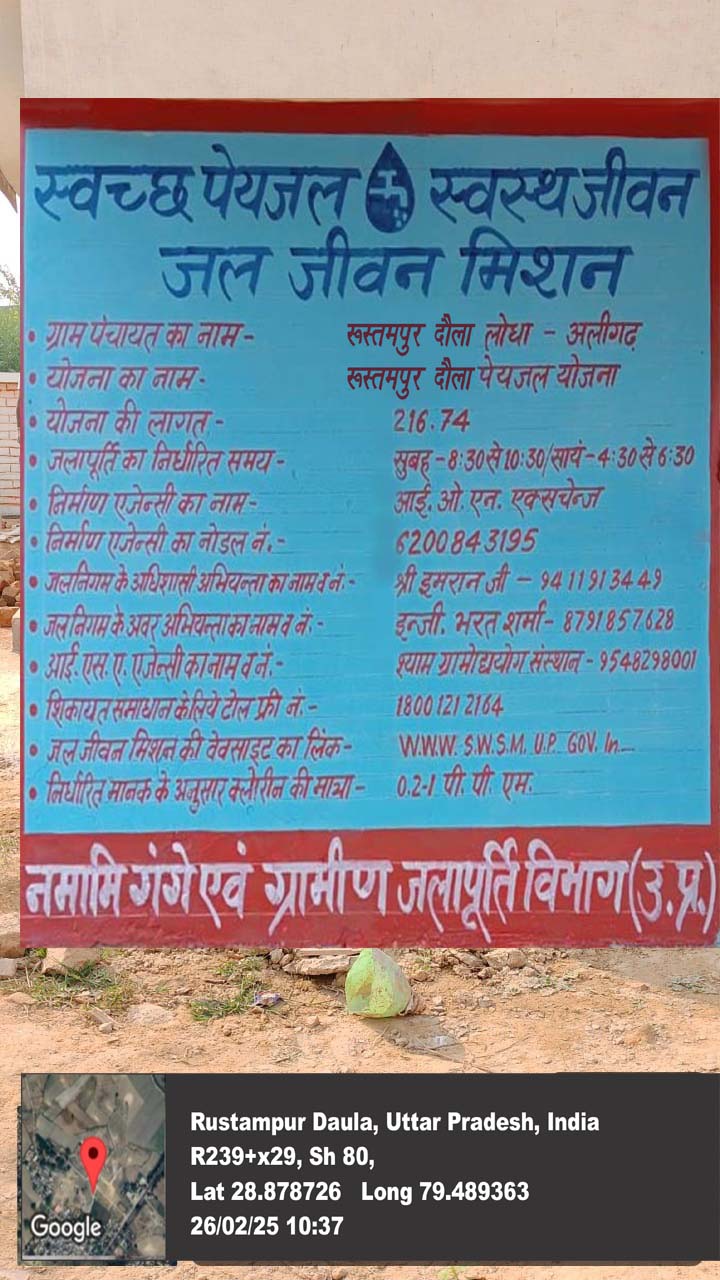 स्वच्छ पेयजल स्वस्थ जीवन
जल जीवन मिशन
• ग्राम पंचायत का नाम - रूस्तमपुर दौला लोधा - अलीगढ़
• योजना का नाम - रूस्तमपुर दौला पेयजल योजना
• योजना की लागत - 216.74
• जलापूर्ति का निर्धारित समय - सुबह - 8:30 से 10:30/सायं - 4:30 से 6:30
• निर्माण एजेन्सी का नाम - आई. ओ. एन. एक्सचेन्ज
• निर्माण एजेन्सी का नोडल नं. - 6200843195
• जलनिगम के अधिशासी अभियन्ता का नाम व नं - श्री इमरान जी - 9411913449
• जलनिगम के अवर अभियन्ता का नाम व नं - इन्जी. भरत शर्मा - 8791857628
• आई. एस. ए. एजेन्सी का नाम व नं - श्याम ग्रामोद्ययोग संस्थान - 9548298001
• शिकायत समाधान के लिये टोल फ्री नं - 18001212164
• जल जीवन मिशन की वेवसाइट का लिंक - W.W.W. S.W.S.M. U.P. GOV. In
• निर्धारित मानक के अनुसार क्लोरीन की मात्रा - 0.2-1 पी. पी. एम.
नमामि गंगे एवं ग्रामीण जलापूर्ति विभाग (उ.प्र.)
Google
Rustampur Daula, Uttar Pradesh, India
R239+x29, Sh 80,
Lat 28.878726 Long 79.489363
26/02/25 10:37